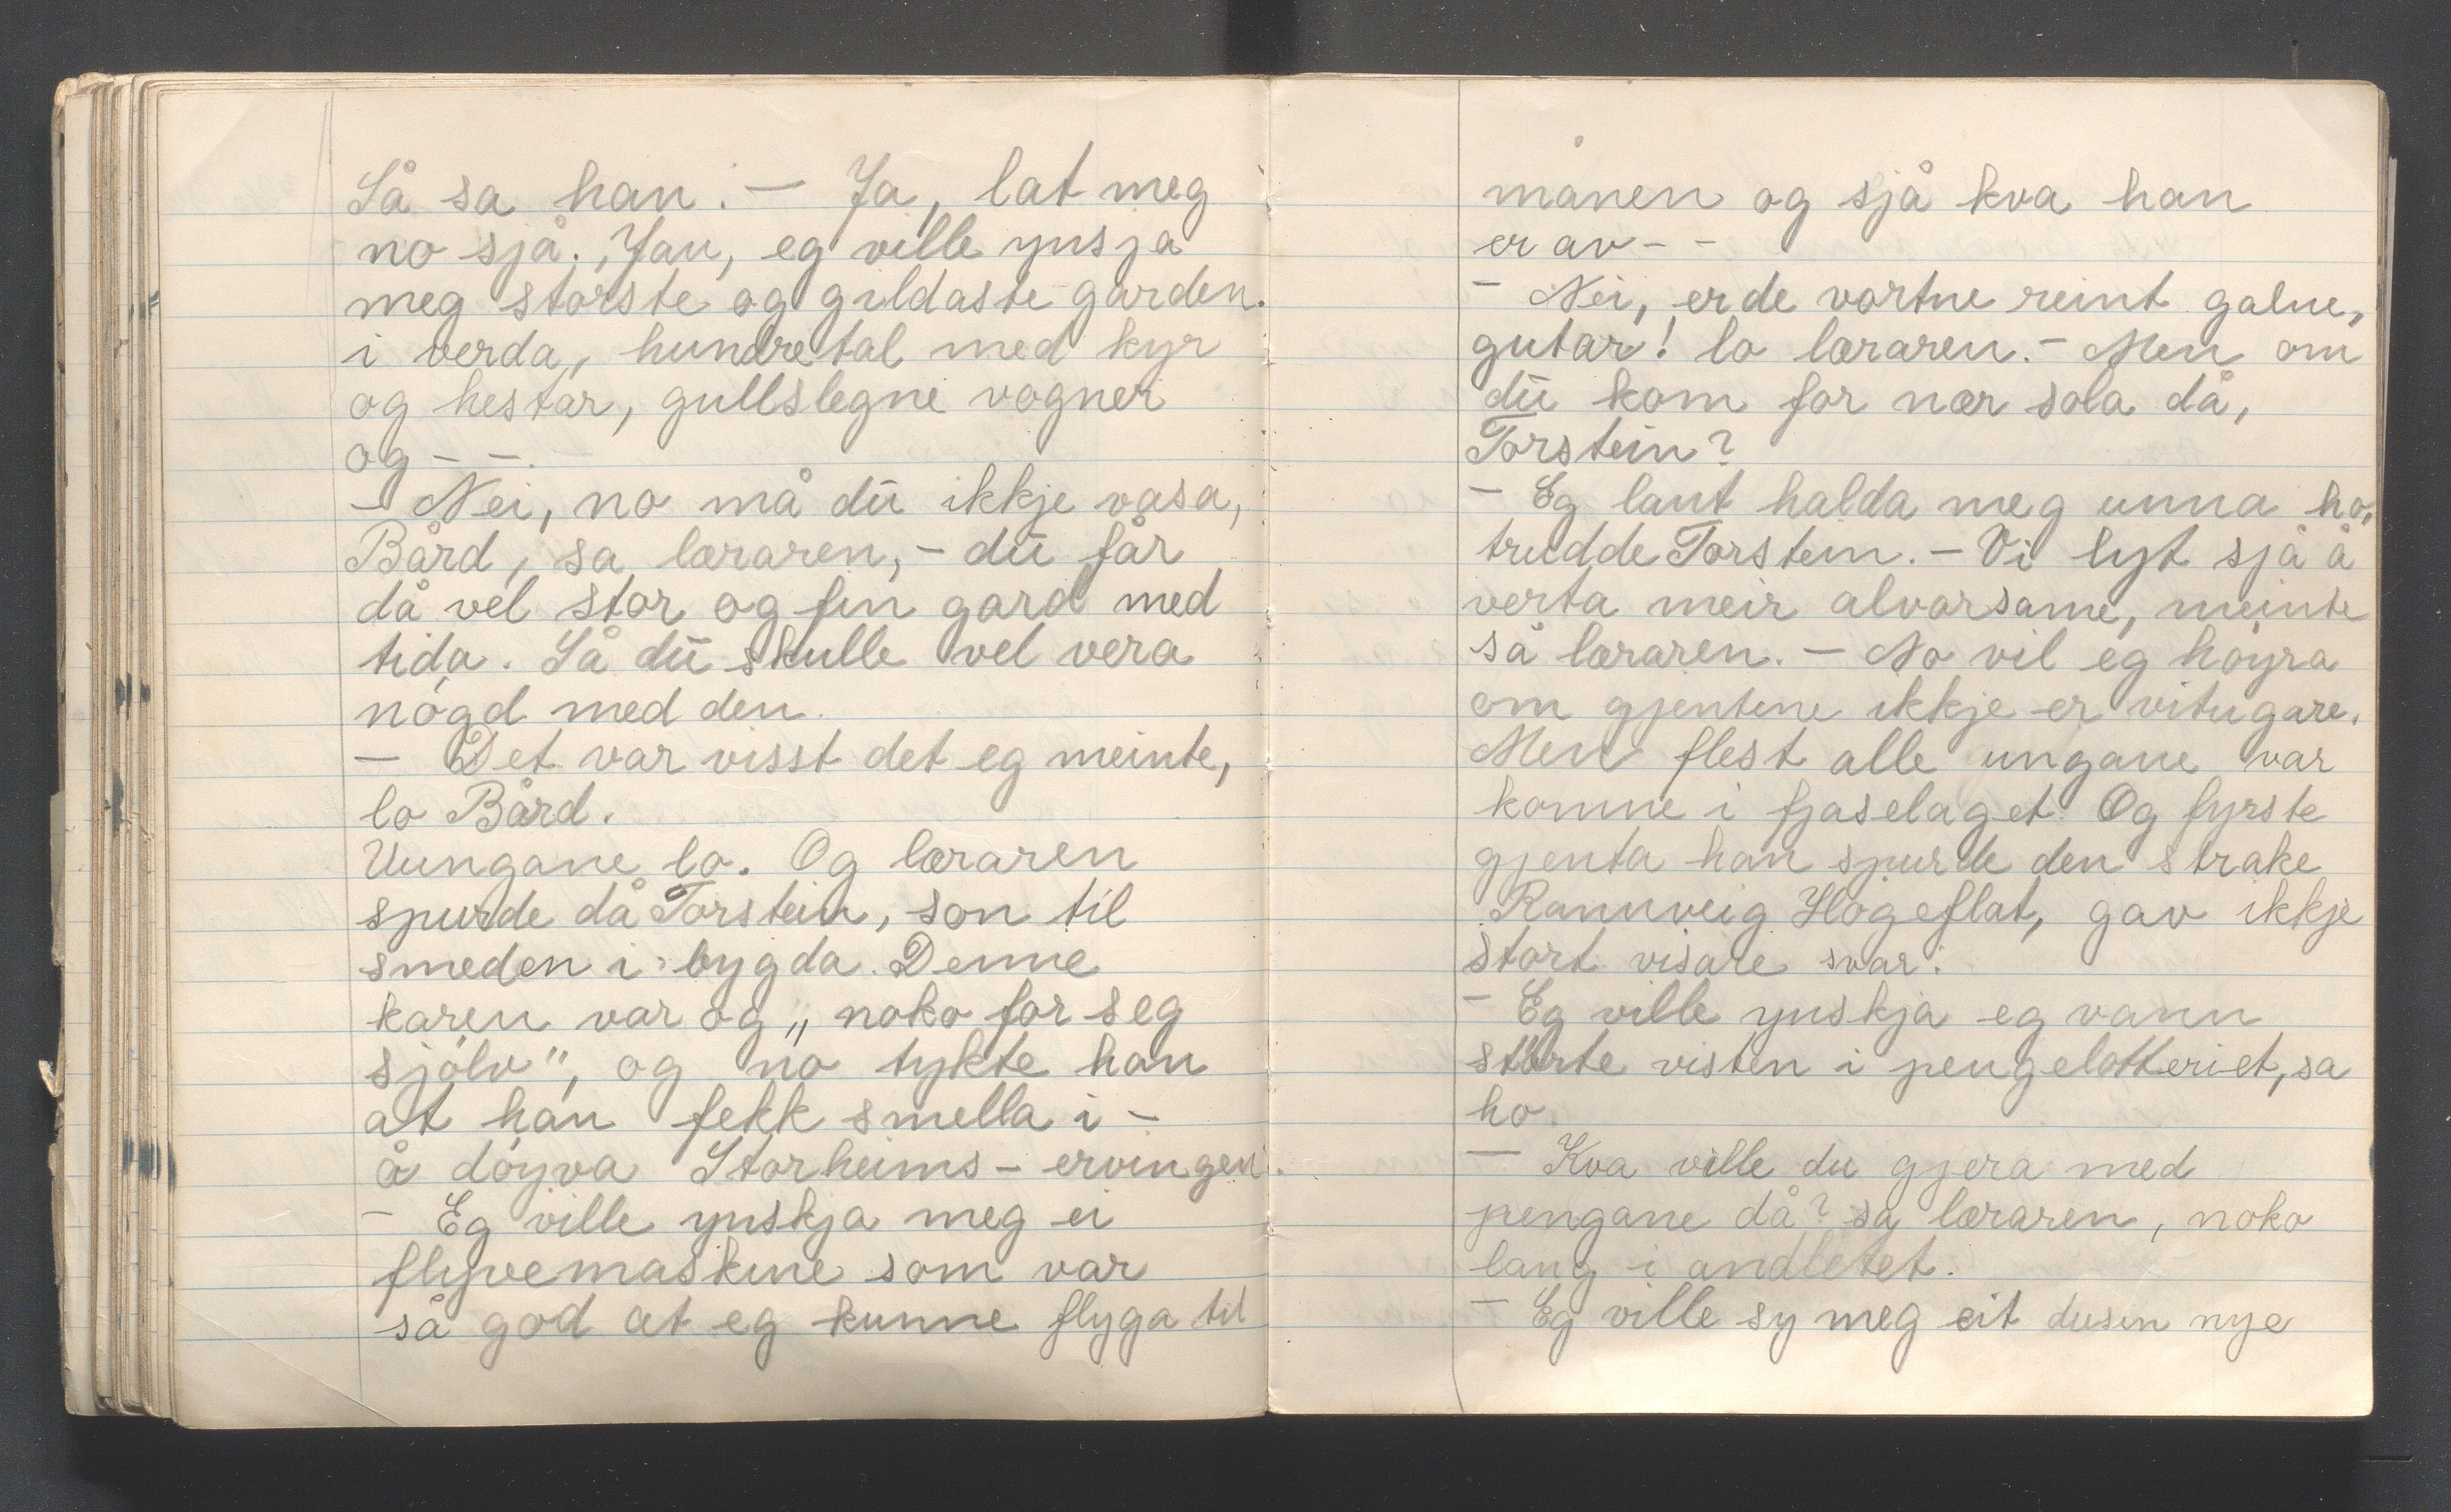 Så sa han. – Ja, lat meg
no sjå. Jau, eg ville ynsja
meg største og gildaste garden.
i verda, hundretal med kyr
og hestar, gullslegne vogner
og – –.
– Nei, no må dū ikkje vasa,
Bård, sa læraren, – dū får
då vel stor og fin gard med
tida. Så dū skulle vel vera
nógd med den.
– Det var visst det eg meinte,
lo Bård.
Uungane lo. Og læraren
spurde då Torstein, son til
smeden i bygda. Denne
karen var og „noko for seg
sjólv", og no tykte han
at han fekk smella i –
å dóyva Storheims-ervingen.
– Eg ville ynskja meg ei
flyvemaskine som var
så god at eg kunne flyga til
månen og sjå kva han
er av – –
– Nei, er de vortne reint galne,
gutar! lo læraren. – Men om
dū kom for nær sola då,
Torstein?
– Eg laut halda meg unna ho,
trudde Torstein. – Vi lyt sjå å
verta meir alvorsame, meinte
så læraren. – No vil eg hóyra
om gjentene ikkje er vitugare.
Men flest alle ungane var
komne i fjaselaget. Og fyrste
gjenta han spurde den strake
Rannveig Hógeflat, gav ikkje
stort visare svar:
– Eg ville ynskja eg vann
størte visten i pengelotteriet, sa
ho.
– Kva ville du gjera med
pengane då? sa læraren, noko
lang i andletet.
– Eg ville sy meg eit dusin nye